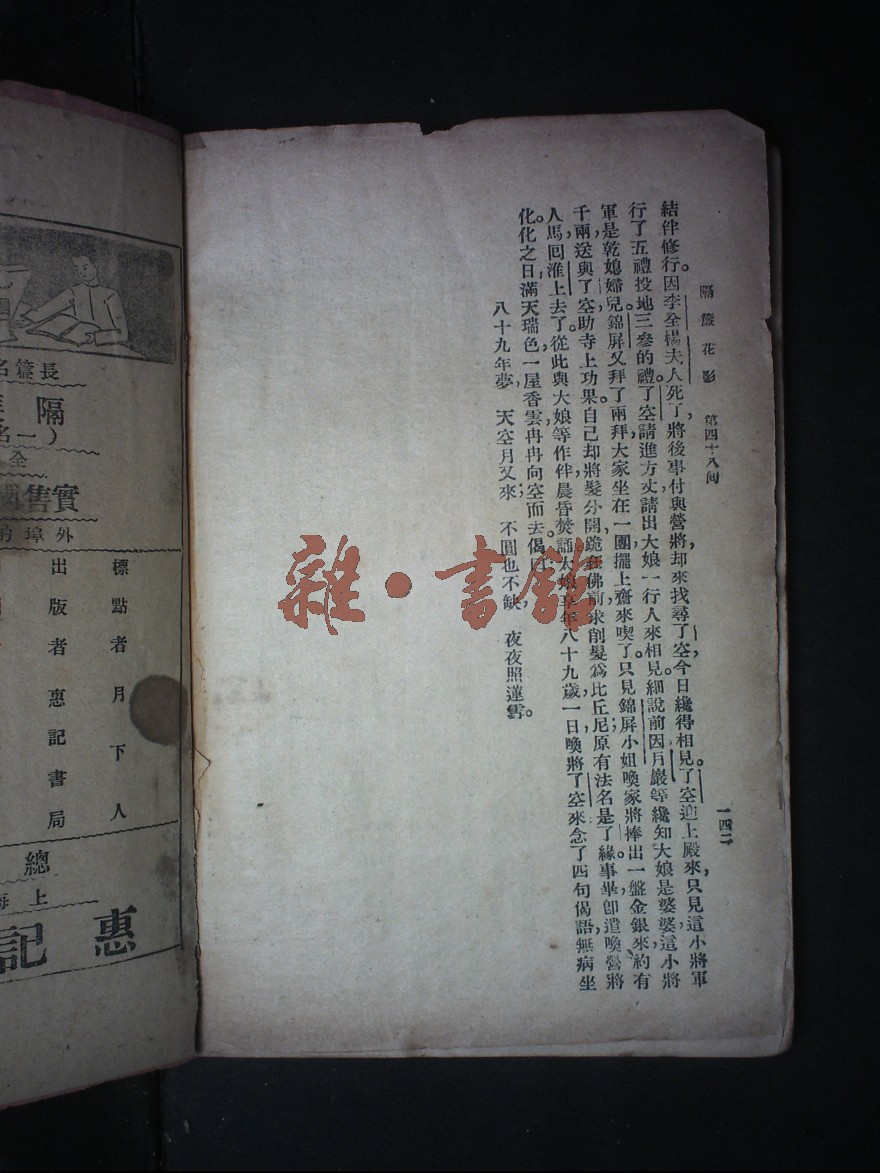 隔簾花影 第四十八回
一四二
結伴修行。因李全楊夫人死了，將後事付與營將，却來找尋了空，今日纔得相見。了空迎上殿來，只見這小將軍
行了五禮投地三參的禮。了空請進方丈，請出大娘一行人來相見，細說前因。月巖等纔知大娘是婆婆，這小將
軍是乾媳婦兒。錦屏又拜了兩拜，大家坐在一團，擺上齋來喫了。只見錦屏小姐喚家將捧出一盤金銀來，約有
千兩，送與了空助寺上功果。自己却將髮分開，跪在佛前，求削髮爲比丘尼。原有法名，是了緣。事畢，卽遣喚營將
人馬囘淮上去了。從此與大娘等作伴，晨昏焚誦。大娘享年八十九歲，一日喚將了空來，念了四句偈語，無病坐
化。化之日，滿天瑞色，一屋香雲，冉冉向空而去。偈曰：
八十九年夢，天空月又來；不圓也不缺，夜夜照蓮臺。
雜·書館
長篇名
隔
（一名
全
實售國
外埠
標點者 月下人
出版者 惠記書局
總
上海
惠記